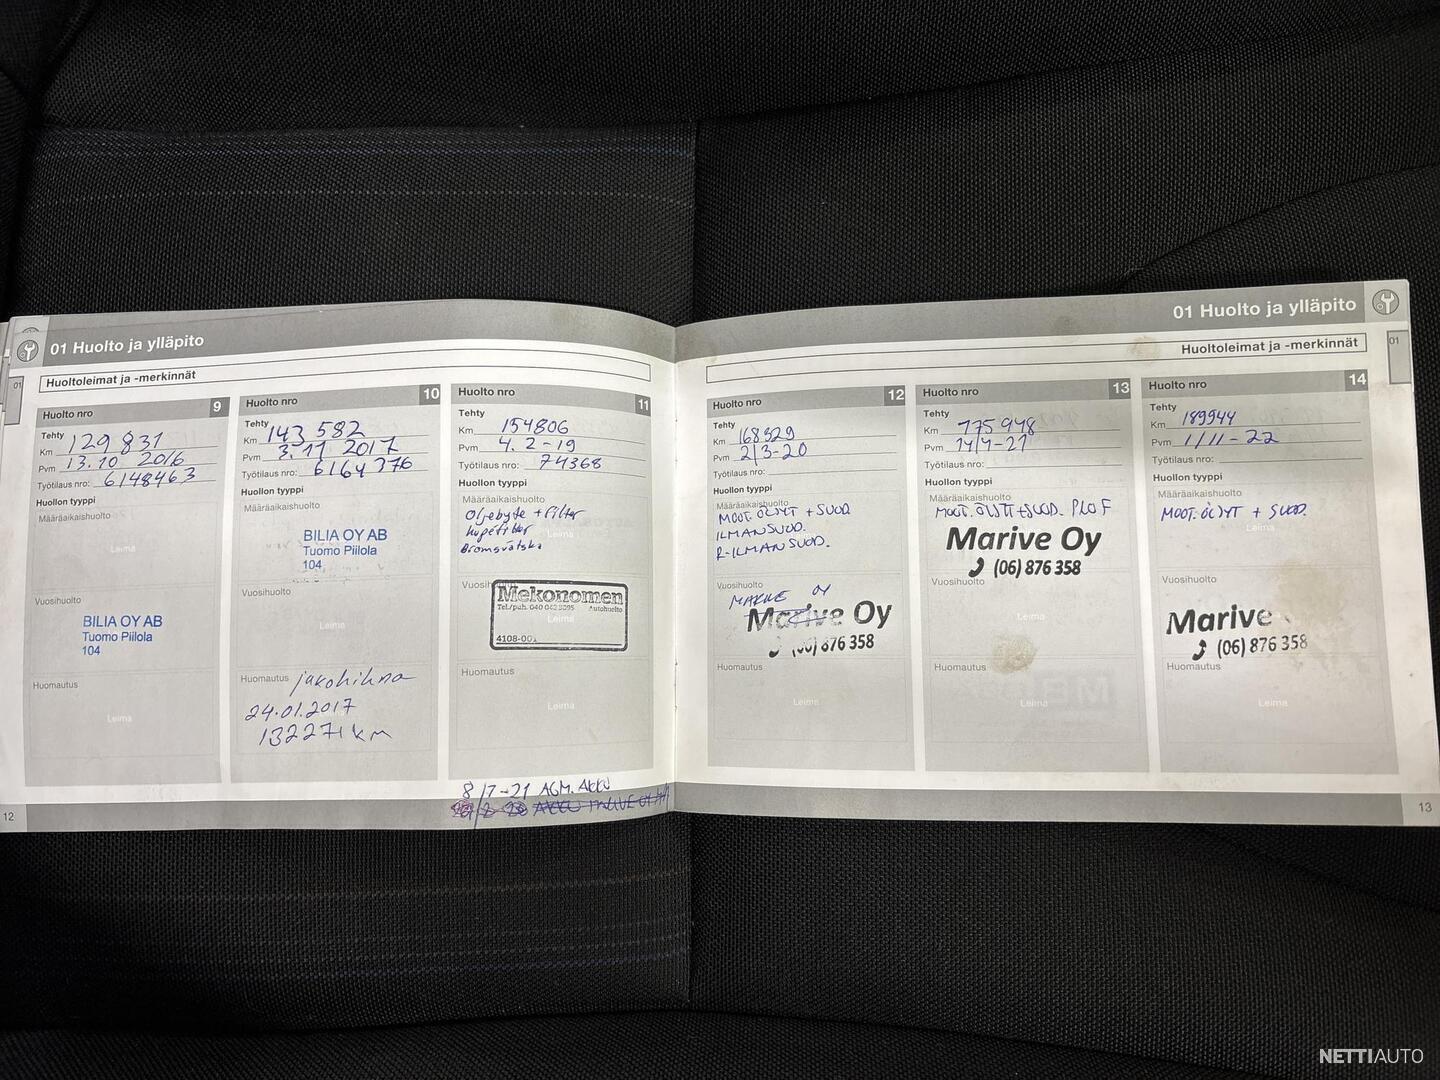 01 Huolto ja ylläpito
Huoltoleimat ja -merkinnät
Huolto nro 9
Tehty
Km 129 831
Pvm 13.10 2016
Työtilaus nro: 6148463
Huollon tyyppi
Määräaikaishuolto
Leima
Vuosihuolto
BILIA OY AB
Tuomo Piilola
104
Huomautus
Leima
Huolto nro 10
Tehty
Km 143 582
Pvm 3.11 2017
Työtilaus nro: 6164376
Huollon tyyppi
Määräaikaishuolto
BILIA OY AB
Tuomo Piilola
104
Vuosihuolto
Leima
Huomautus jakohihna
24.01.2017
132271 km
Huolto nro 11
Tehty
Km 154806
Pvm 4.2-19
Työtilaus nro: 74368
Huollon tyyppi
Määräaikaishuolto
Oljebyte + Filter
Kupefilter
Leima
Bromsvätska
Vuosihuolto
Mekonomen
Autohuolto
4108-001
Leima
Huomautus
Leima
8/7-21 AGM. AKKU
12
01 Huolto ja ylläpito
01
Huoltoleimat ja -merkinnät
Huolto nro 12
Tehty
Km 168329
Pvm 2/3-20
Työtilaus nro:
Huollon tyyppi
Määräaikaishuolto
MOOT.ÖLJYT + SUOD.
ILMANSUOD.
R-ILMANSUOD.
Vuosihuolto
Marive Oy
(06) 876 358
Huomautus
Leima
Huolto nro 13
Tehty
Km 175948
Pvm
Työtilaus nro:
Huollon tyyppi
Määräaikaishuolto
Marive Oy
(06) 876 358
Vuosihuolto
Leima
Huomautus
Leima
Huolto nro 14
Tehty
Km 189944
Pvm 1/11-22
Työtilaus nro:
Huollon tyyppi
Määräaikaishuolto
MOOT.ÖLJYT + SUOD.
Leima
Vuosihuolto
Marive
(06) 876 358
Huomautus
Leima
13
NETTIAUTO